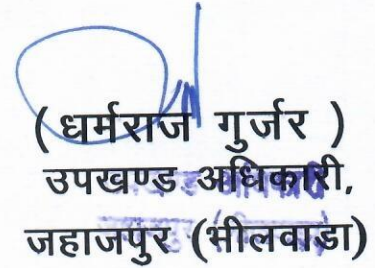 ( धर्मराज गुर्जर )
उपखण्ड अधिकारी,
जहाजपुर (भीलवाडा)